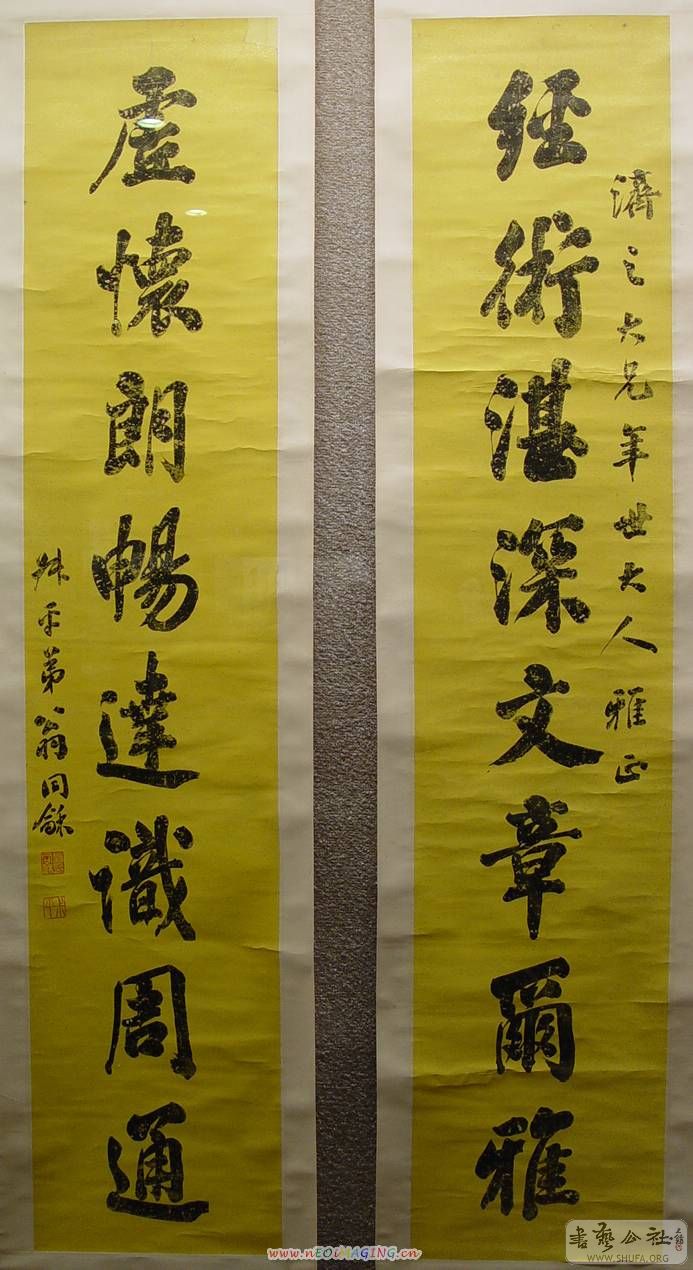 濟之大兄年世大人雅正
經術湛深文章爾雅
虛懷朗暢達識周通
叔平弟翁同龢
書藝公社
WWW.SHUFA.ORG
www.nEOiMAGING.cn